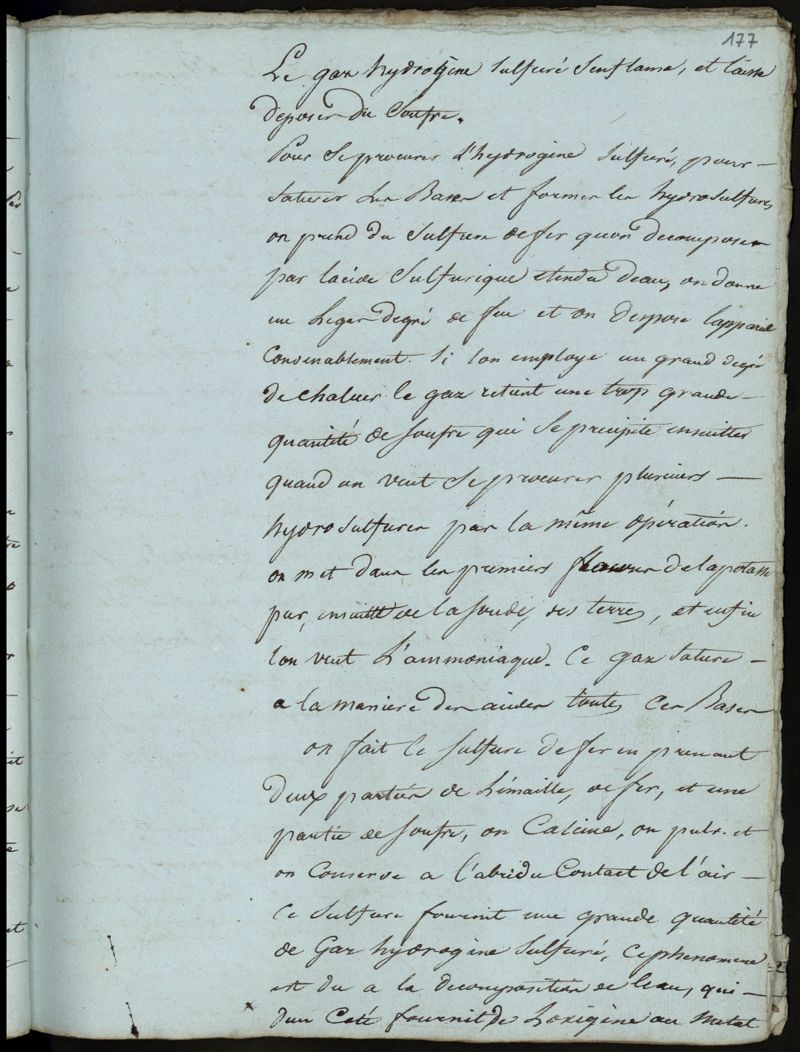 177
Le gaz hydrogène sulfuré senflame, et laisse
deposer du soufre.
Pour se procurer L'hydrogène sulfuré, pour —
saturer les Bases et former les hydrosulfures
on prend du sulfure de fer quon decompose
par lacide sulfurique etendu deau, on donne
un leger degré de feu et on dispose lappareil
Convenablement. Si lon employe un grand degré
de chaleur le gaz retient une trop grande —
quantité de soufre qui se precipite ensuitte
quand on veut se procurer plusieurs —
hydrosulfures par la même opération.
on met dans les premiers flacons de la potasse
pur, ensuitte de la soude, des terres, et enfin
lon veut L'ammoniaque. Ce gaz sature —
a la maniere des acides toutes ces Bases
on fait le sulfure de fer en prenant
deux parties de Limaille, de fer, et une
partie de soufre, on Calcine, on pulv. et
on Conserve a l'abri du Contact de l'air —
Ce sulfure fournit une grande quantité
de Gaz hydrogène sulfuré, ce phenomene
est du a la decomposition de leau, qui —
dun Coté fournit de Loxigène au Metal